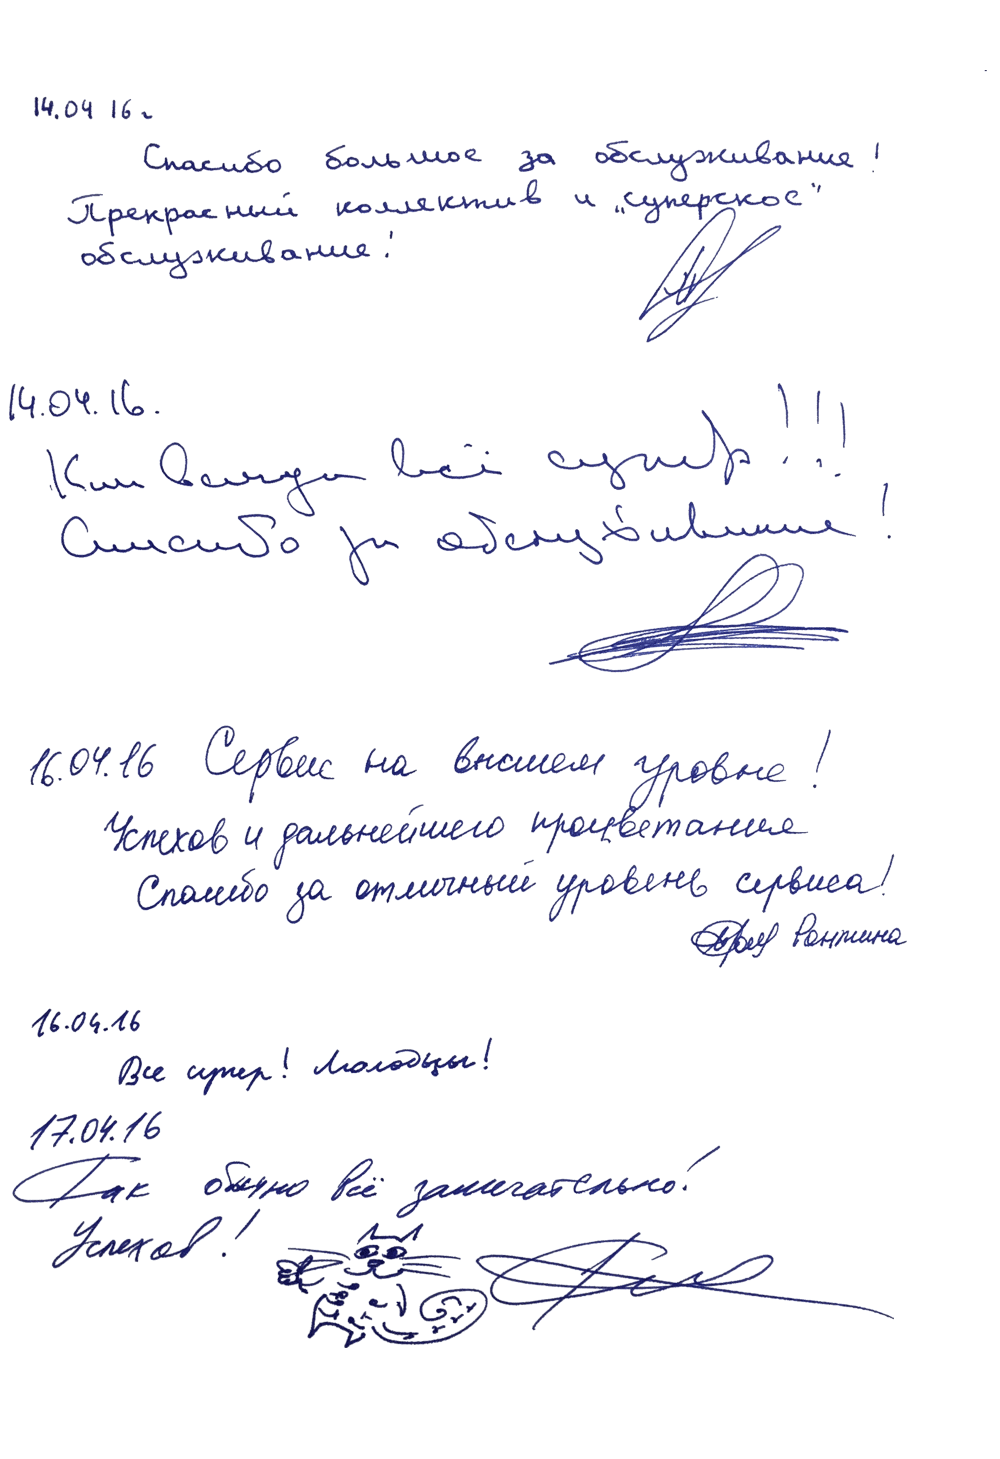 14.04 16 г
Спасибо большое за обслуживание!
Прекрасный коллектив и „суперское"
обслуживание!
14.04.16.
Как всегда всё супер!!!
Спасибо за обслуживание!
16.04.16 Сервис на высшем уровне!
Успехов и дальнейшего процветания
Спасибо за отличный уровень сервиса!
16.04.16
Все супер! Молодцы!
17.04.16
Как обычно всё замечательно!
Успехов!